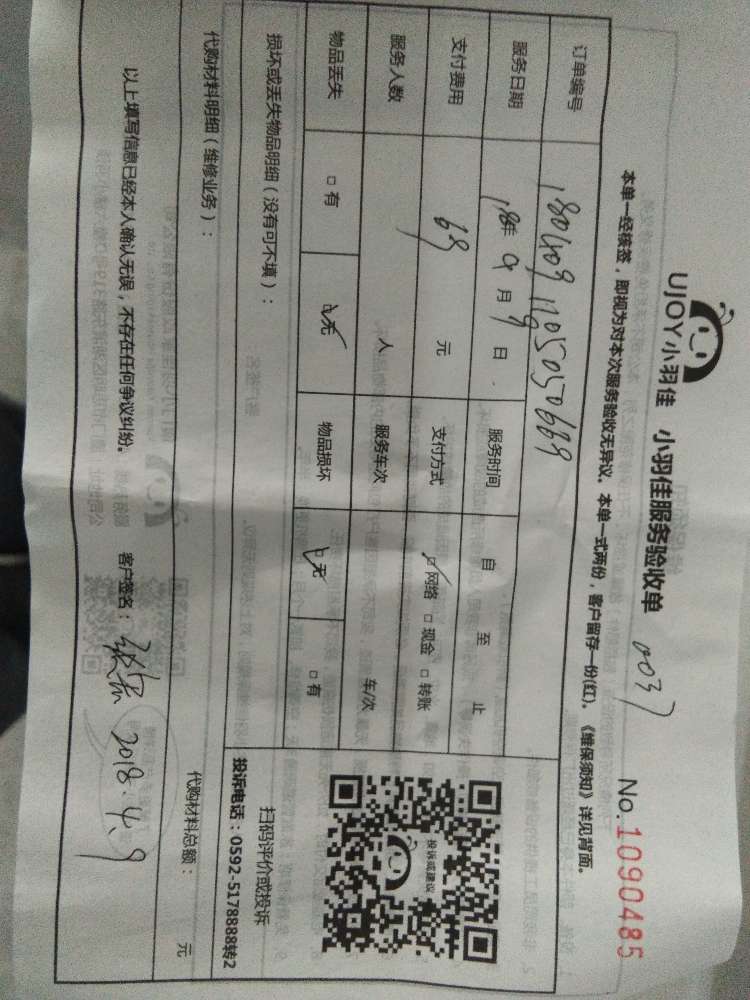 UJOY小羽佳 小羽佳服务验收单 0037 No.1090485
本单一经核签，即视为对本次服务验收无异议。本单一式两份，客户留存一份(红)。《维保须知》详见背面。
订单编号
服务日期 18年 4月 9日 服务时间 自 至 止
支付费用 69 元 支付方式 □网络 □现金 □转账
服务人数 人 服务车次 车/次
物品丢失 □有 □无 物品损坏 □无 □有
损坏或丢失物品明细（没有可不填）：
投诉或建议
扫码评价或投诉
投诉电话：0592-5178888转2
代购材料明细（维修业务）： 代购材料总额： 元
以上填写信息已经本人确认无误，不存在任何争议纠纷。 客户签名： 2018.4.9